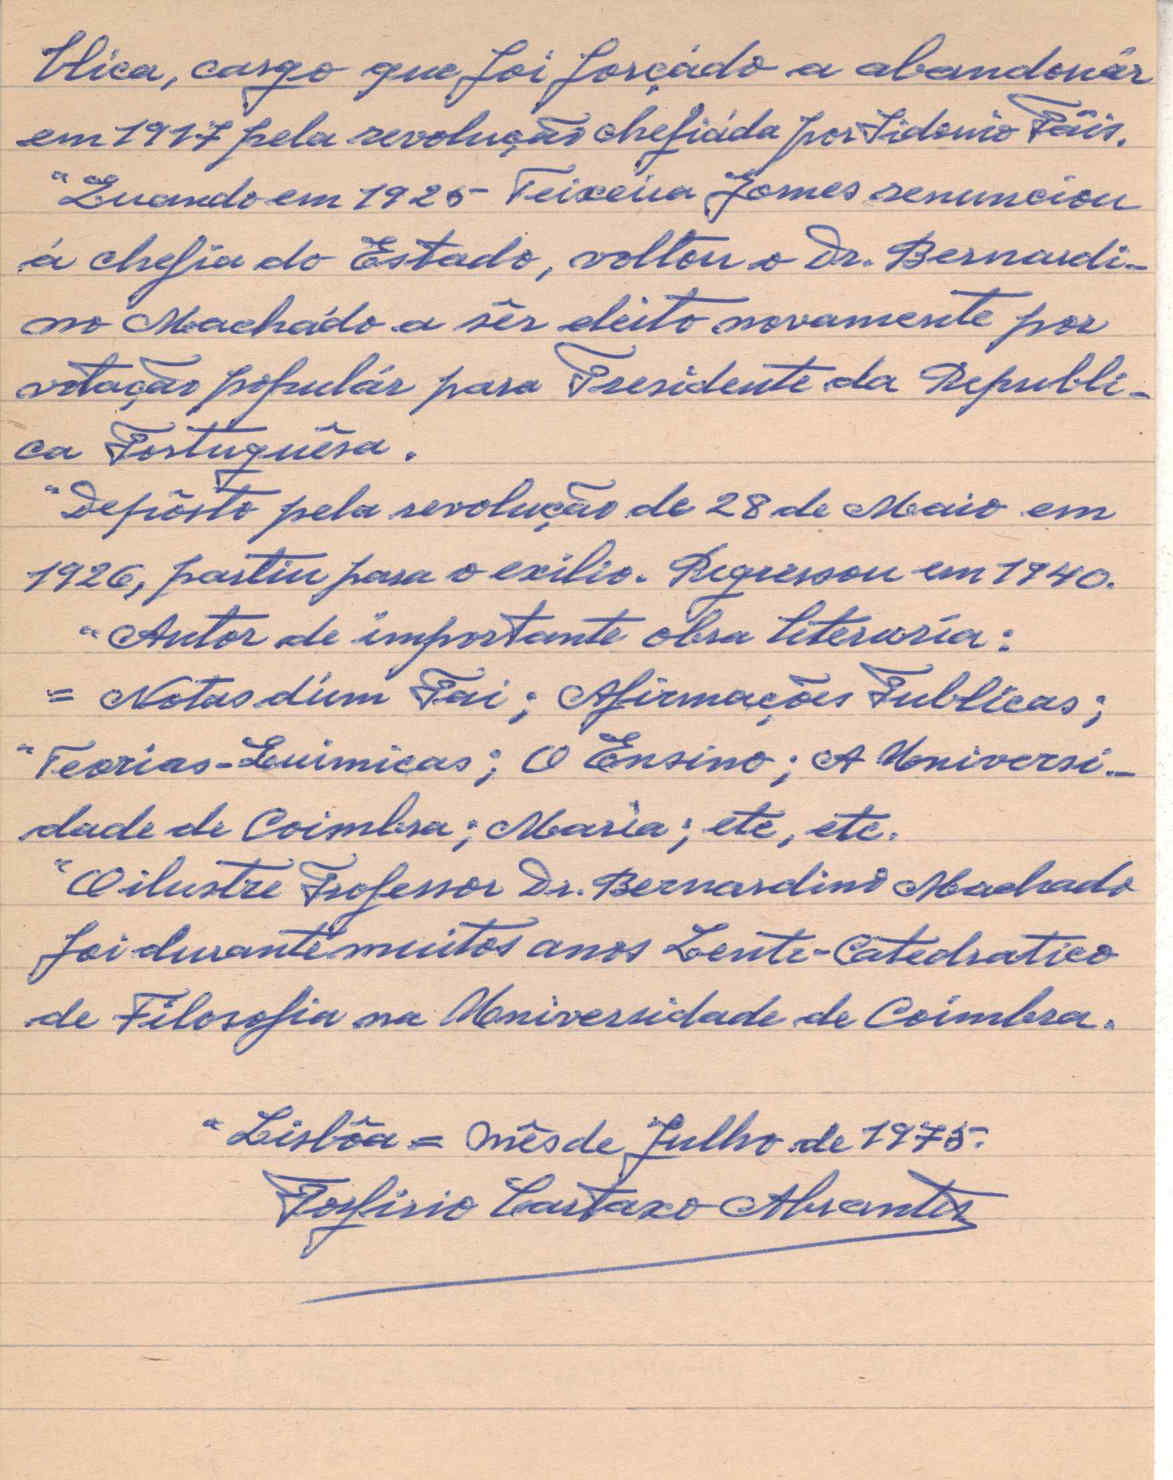 blica, cargo que foi forçádo a abandonár
em 1917 pela revolução chefiáda por Sidonio Páis.
"Quando em 1925 - Teixeira Gomes renunciou
á chefia do Estado, voltou o Dr. Bernardi-
no Machádo a sêr eleito novamente por
votação populár para Presidente da Republi-
ca Portuguêsa.
"Depôsto pela revolução de 28 de Maio em
1926, partiu para o exílio. Regressou em 1940.
"Autor de importante obra literaría:
= Notas díum Pai; Afirmações Publícas;
"Teorias-Quimicas; O Ensino; A Universi-
dade de Coimbra; María; etc, etc.
"O ilustre Professor Dr. Bernardino Machado
foi durante muitos anos Lente-Catedratico
de Filosofia na Universidade de Coimbra.
"Lisbôa = Mês de Julho de 1975.
Porfirio Cartaxo Abrantes